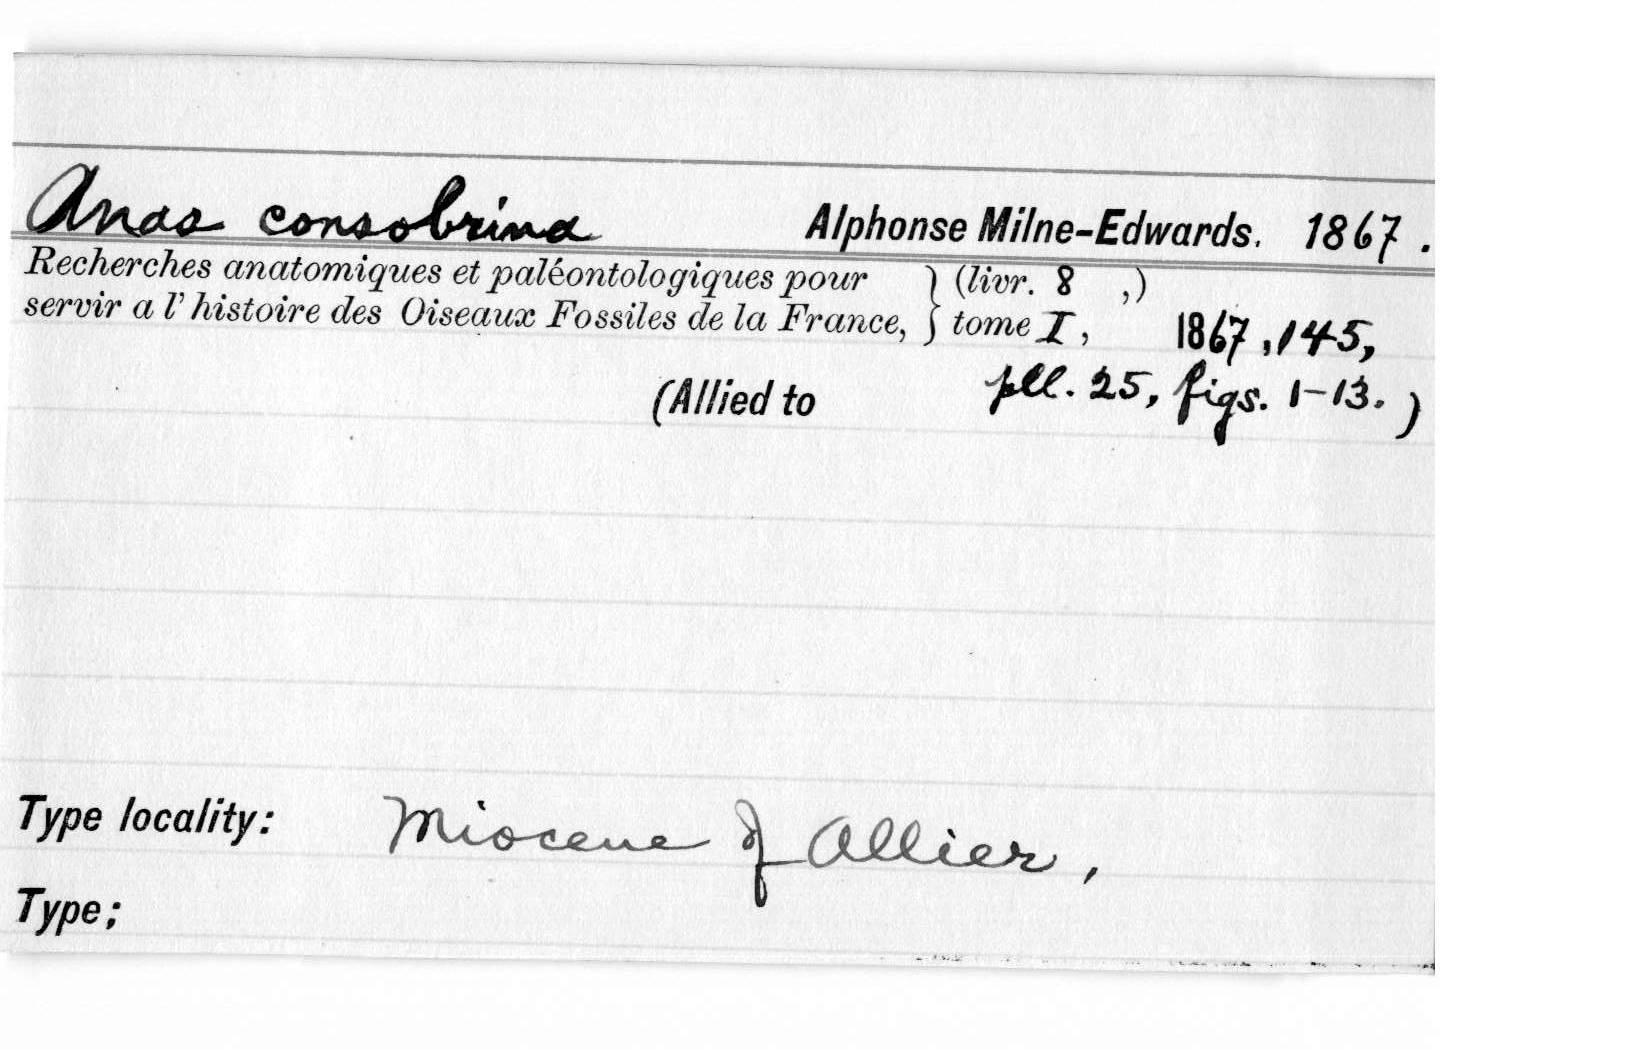 Anas consobrina Alphonse Milne-Edwards. 1867.
Recherches anatomiques et paléontologiques pour } (livr. 8 ,)
servir a l' histoire des Oiseaux Fossiles de la France, } tome I, 1867, 145,
(Allied to pll. 25, figs. 1-13. )
Type locality: Miocene of Allier,
Type;